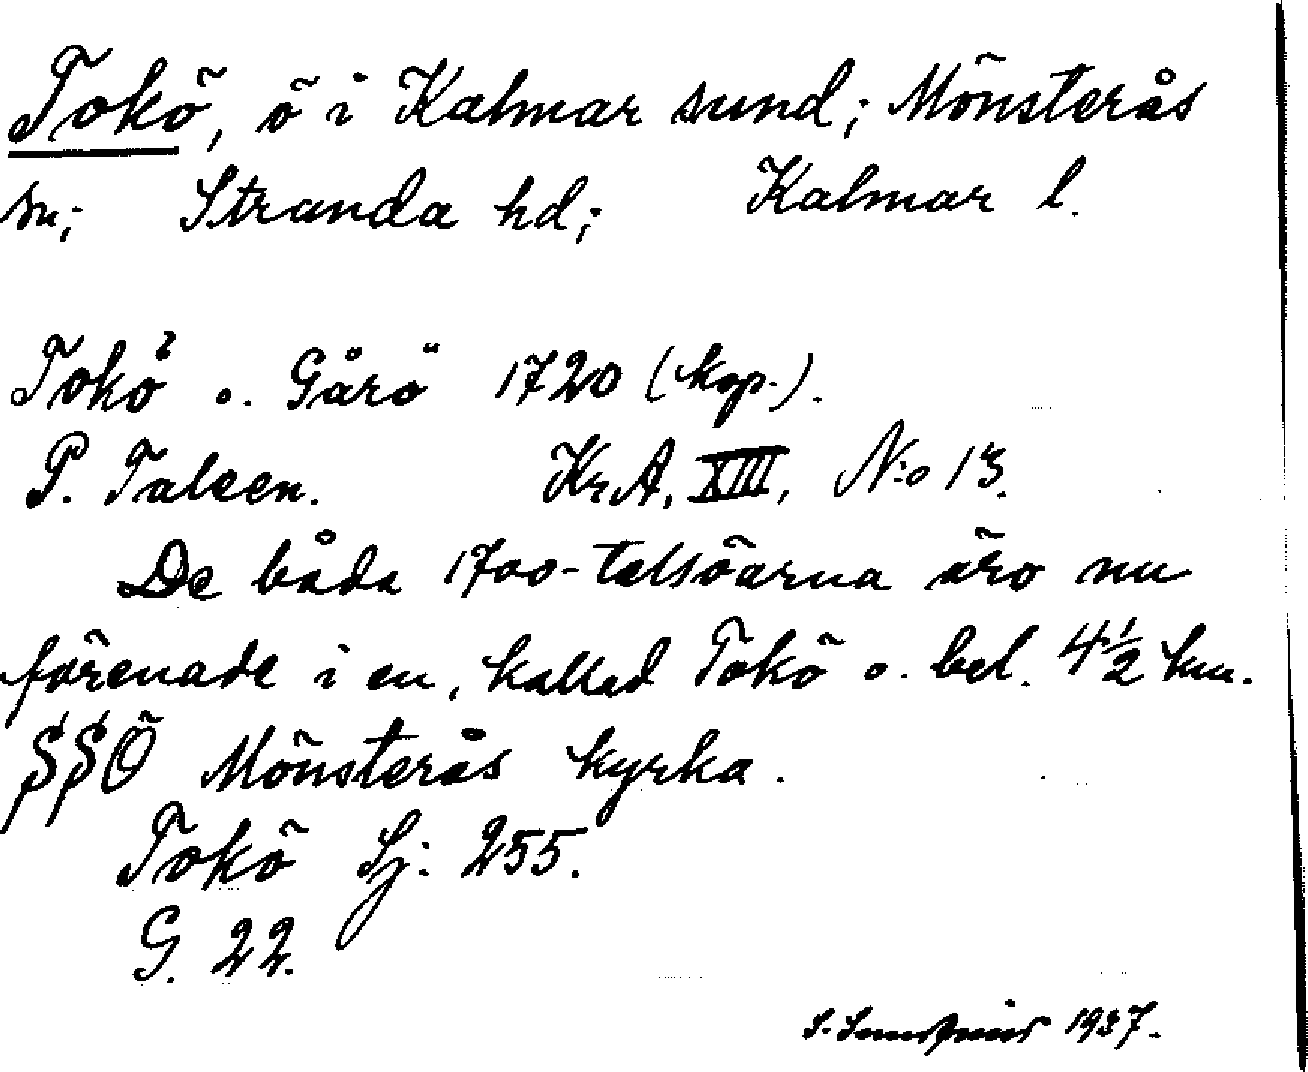 Tokö, ö i Kalmar sund; Mönsterås
sn; Stranda hd; Kalmar l.
Tokö o. Gårö 1720 (kop.).
P. Talcen. KrA, XIII, N:o 13.
De båda 1700-talsöarna äro nu
förenade i en, kallad Tokö o. bel. 4 1/2 km.
SSÖ Mönsterås kyrka.
Tokö Sj: 255.
G. 22.
S. 1937.